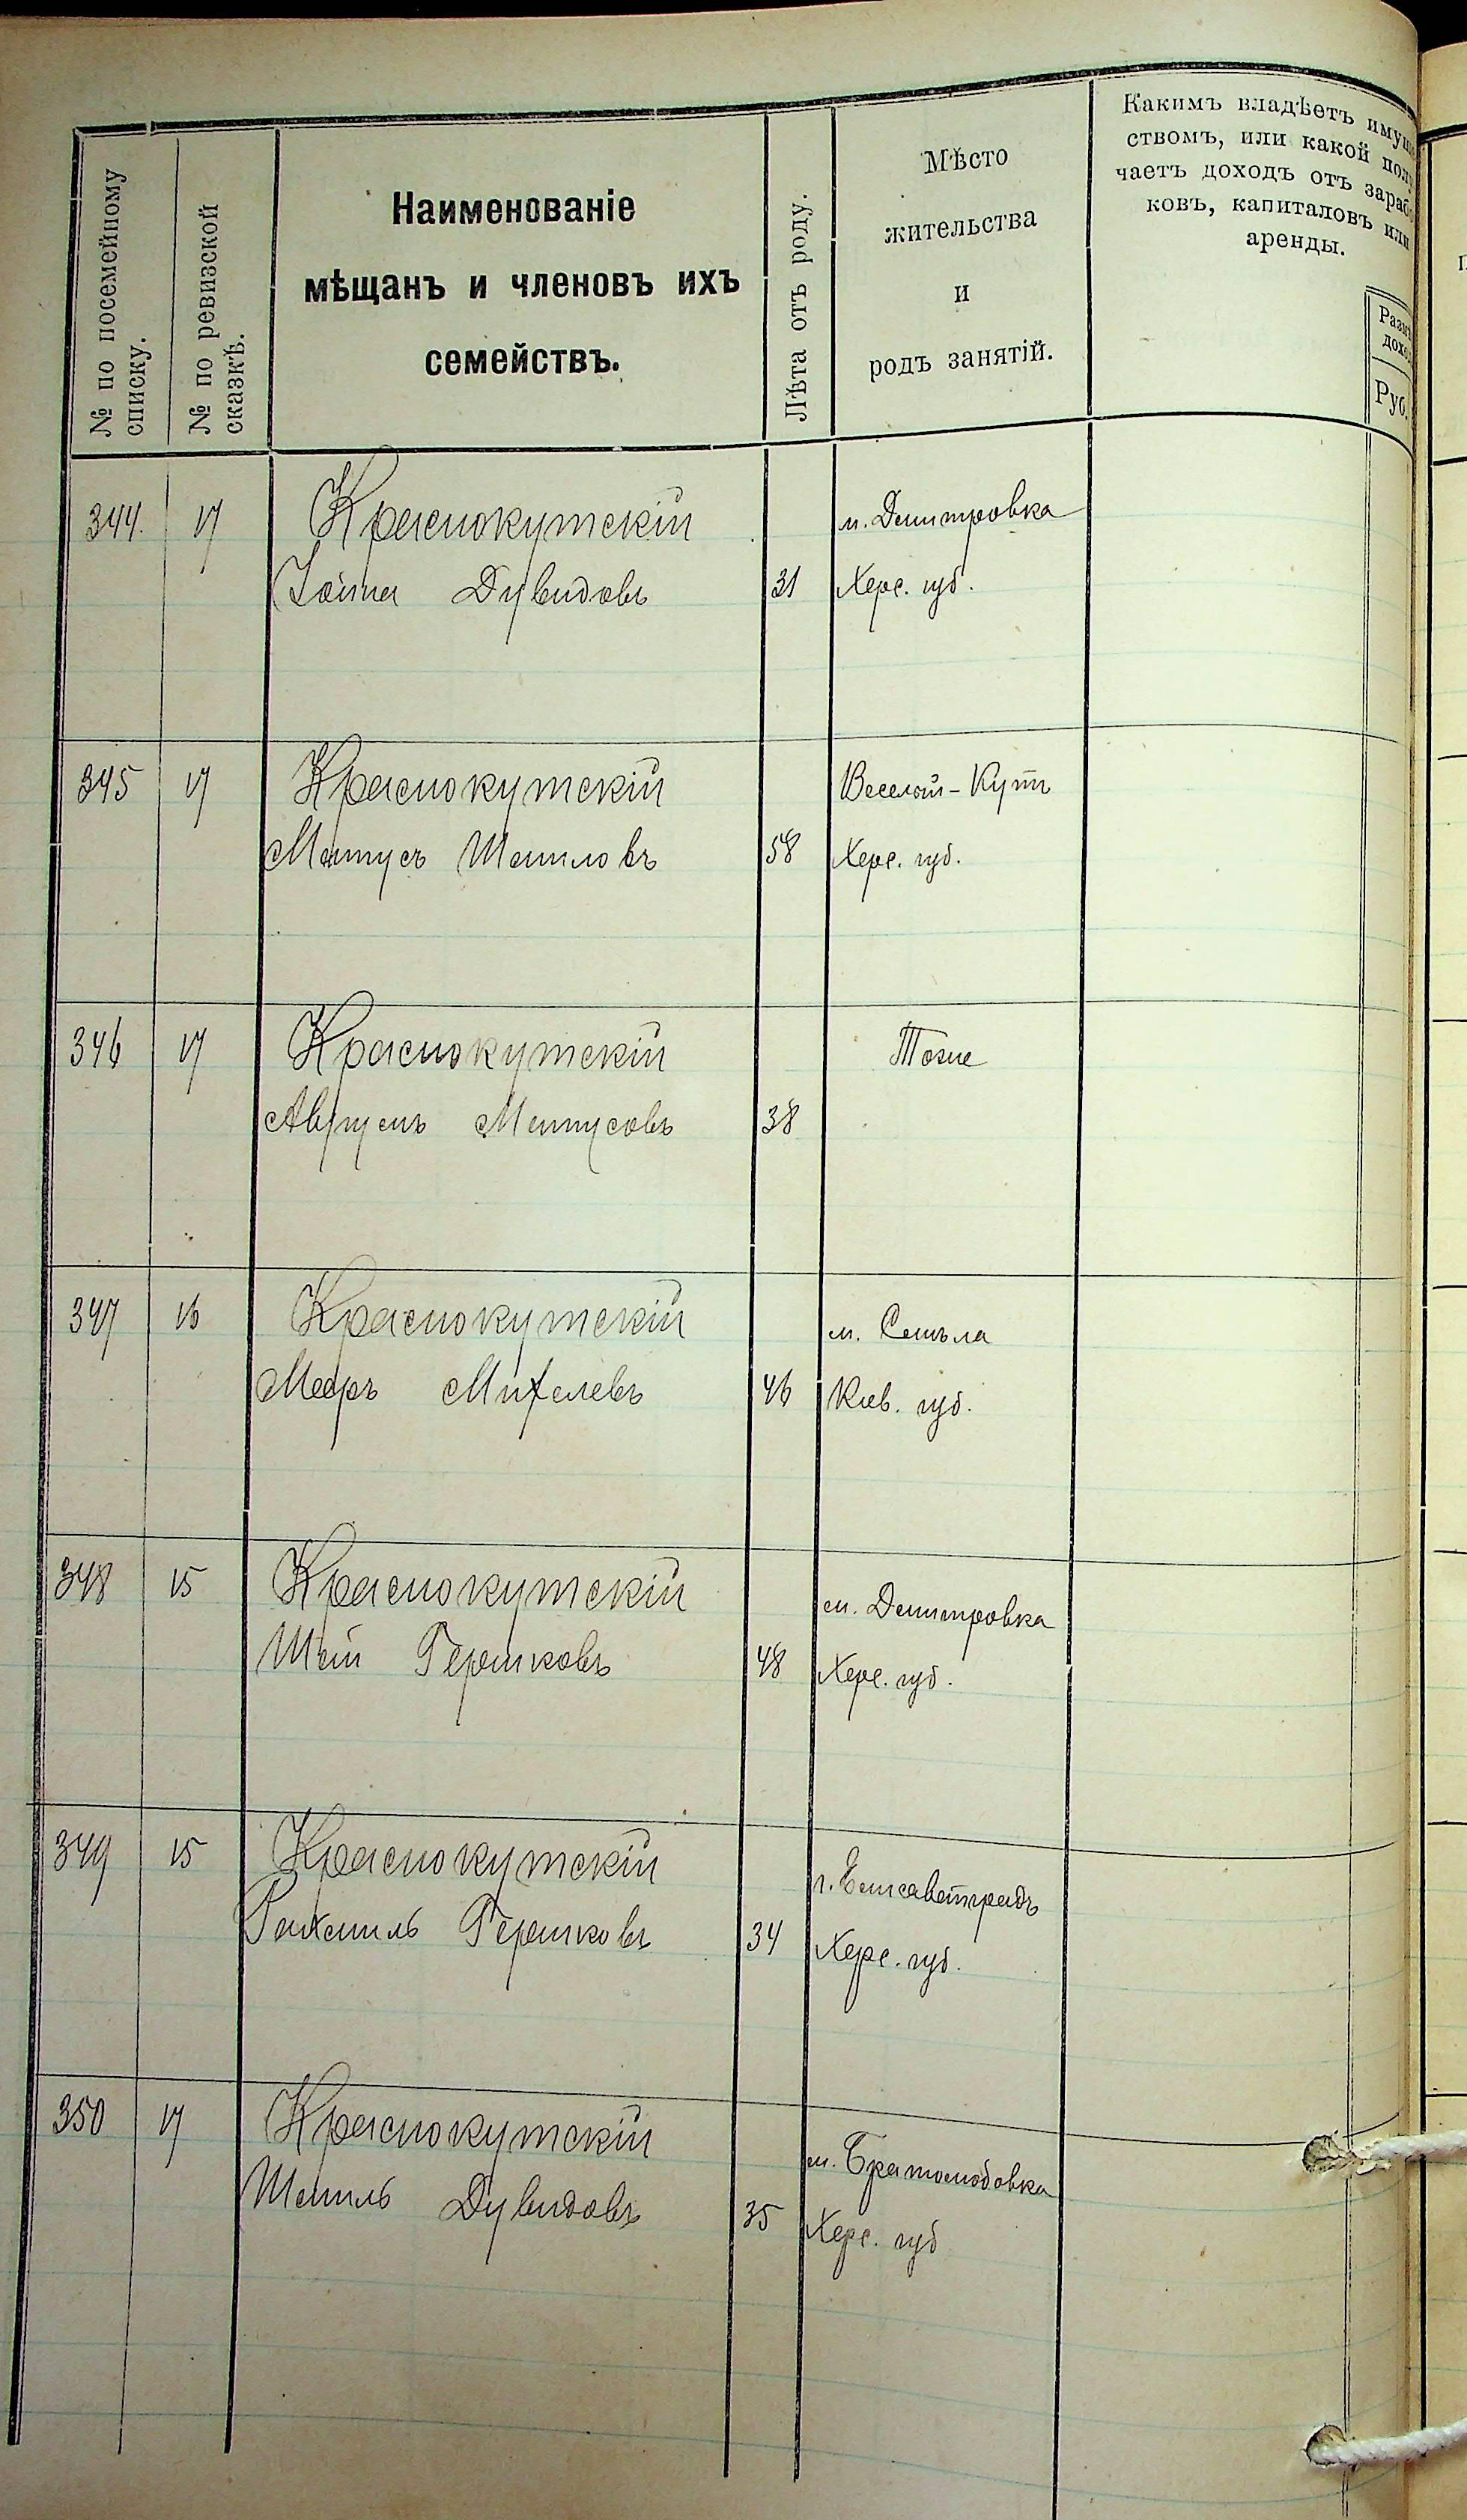 № по посемейному
списку.
№ по ревизской
сказкѣ.
Наименованіе
мѣщанъ и членовъ ихъ
семействъ.
Лѣта отъ роду.
Мѣсто
жительства
и
родъ занятій.
Какимъ владѣетъ имущ
ствомъ, или какой полу
чаетъ доходъ отъ зараб
ковъ, капиталовъ или
аренды.
Разм
дохо
Руб.
344. 17 Краснокутскій м. Дмитровка
Дувидовъ 31 Херс. губ.
345 17 Краснокутскій Веселый-Кутъ
Матусъ Шмиловъ 58 Херс. губ.
346 17 Краснокутскій Тоже
Аврумъ Матусовъ 38
347 16 Краснокутскій м. Смѣла
Мееръ Михелевъ 46 Кіев. губ.
348 15 Краснокутскій м. Дмитровка
Гершковъ 48 Херс. губ.
349 15 Краснокутскій г. Елисаветградъ
Рахмиль Гершковъ 34 Херс. губ.
350 17 Краснокутскій м. Братолюбовка
Шмиль Дувидовъ 35 Херс. губ